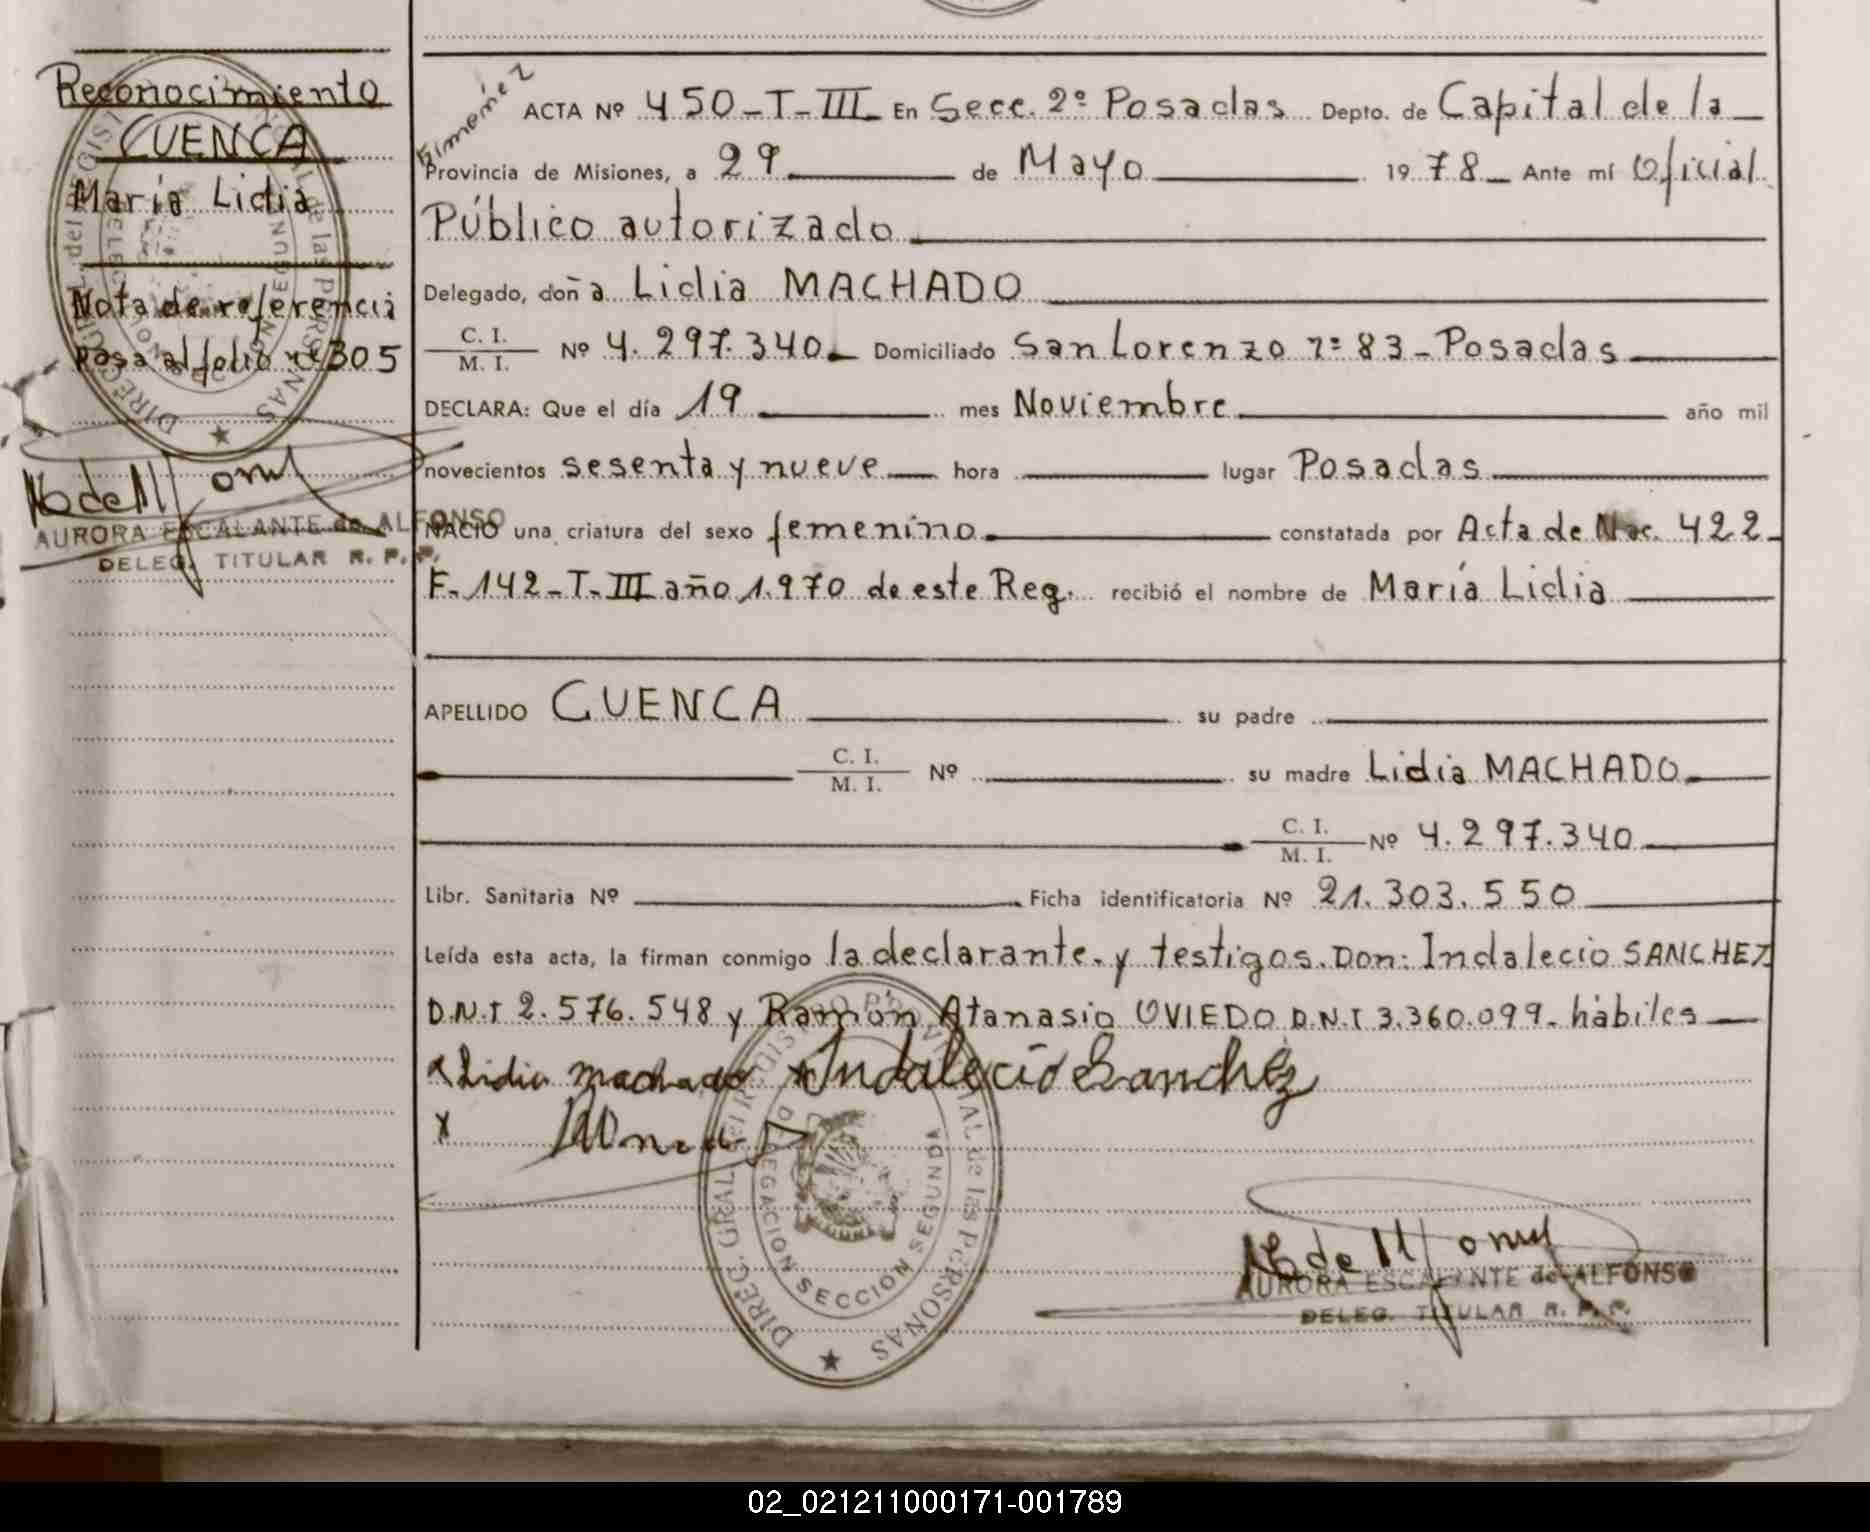 Reconocimiento
CUENCA
María Lidia
Nota de referencia
pasa al folio nº 305
AURORA ESCALANTE de ALFONSO
DELEG. TITULAR R. P. P.
Gimenez
ACTA Nº 450-T-III En Secc. 2º Posadas Depto. de Capital de la
Provincia de Misiones, a 29 de Mayo 1978 Ante mí Oficial
Público autorizado
Delegado, doña Lidia MACHADO
C. I.
M. I. Nº 4.297.340 Domiciliado San Lorenzo nº 83 - Posadas
DECLARA: Que el día 19 mes Noviembre año mil
novecientos sesenta y nueve hora lugar Posadas
NACIO una criatura del sexo femenino constatada por Acta de Nac. 422
F. 142-T-III año 1.970 de este Reg. recibió el nombre de María Lidia
APELLIDO CUENCA su padre
C. I.
M. I. Nº su madre Lidia MACHADO
C. I.
M. I. Nº 4.297.340
Libr. Sanitaria Nº Ficha identificatoria Nº 21.303.550
Leída esta acta, la firman conmigo la declarante y testigos. Don: Indalecio SANCHEZ
D.N.I 2.576.548 y Ramón Atanasio OVIEDO D.N.I 3.360.099 - hábiles
x Lidia machado x Indalecio Sanchez
x
DIREC. GRAL. del REGISTRO PROVINCIAL de las PERSONAS
DELEGACION SECCION SEGUNDA
AURORA ESCALANTE de ALFONSO
DELEG. TITULAR R. P. P.
02_021211000171-001789